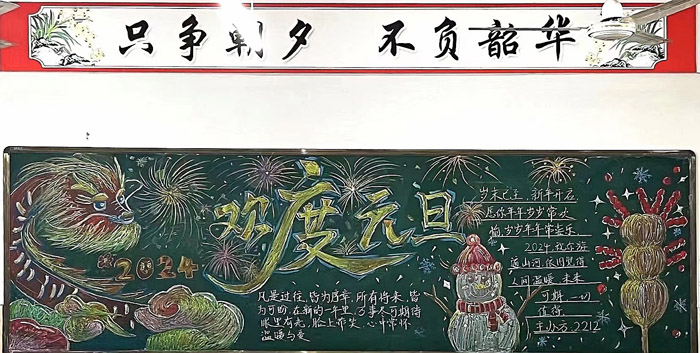 只争朝夕 不负韶华
欢度元旦
2024
凡是过往,皆为序章,所有将来,皆
为可盼,在新的一年里,万事尽可期待
眼里有光,脸上带笑,心中常怀
温暖与爱
岁末已至,新年开启
愿你年年岁岁常欢
愉,岁岁年年常喜乐
2024,我在
山河依旧
人间温暖,未来
可期,一切
值得
主办方:2212